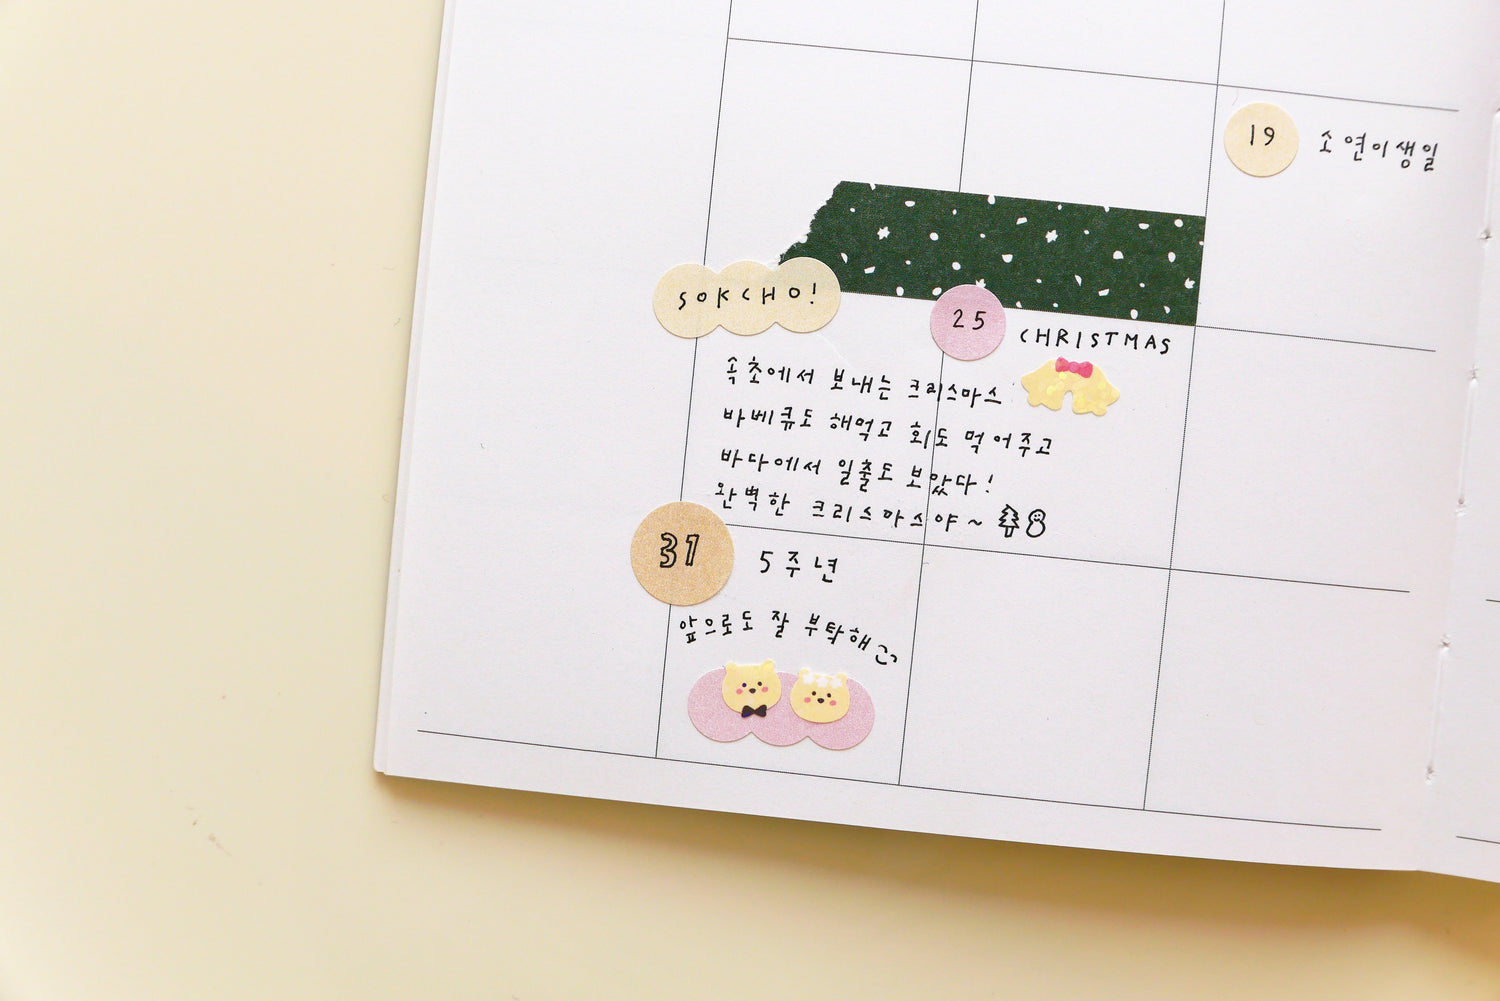 19 소연이생일
SOKCHO!
25 CHRISTMAS
속초에서 보내는 크리스마스
바베큐도 해먹고 회도 먹어주고
바다에서 일출도 보았다!
완벽한 크리스마스야~
31 5주년
앞으로도 잘 부탁해